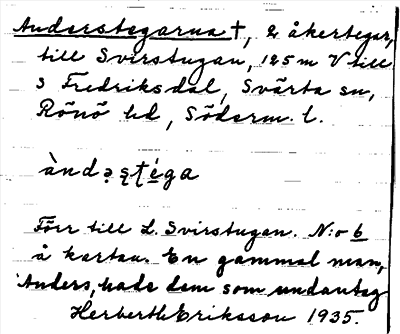 Anderstegarna †, 2 åkertegar,
till Svirstugan, 125 m V till
S Fredriksdal, Svärta sn,
Rönö hd, Söderm. l.
àndəʂʈéga
Förr till L. Svirstugan. N:o 6
å kartan. En gammal man,
Anders, hade dem som undantag
Herbert Eriksson 1935.